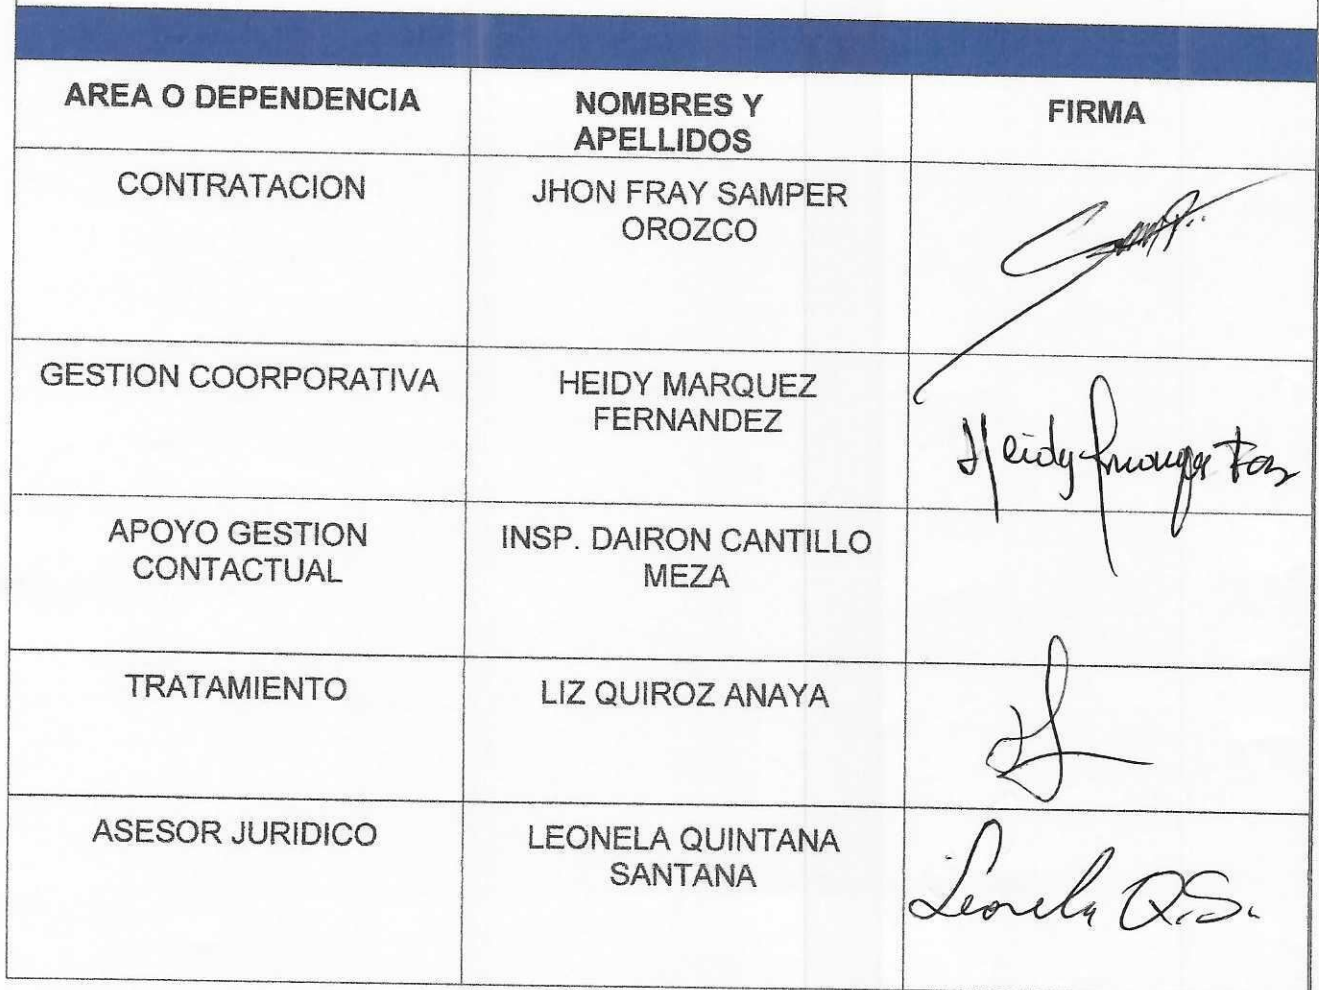 AREA O DEPENDENCIA
NOMBRES Y
APELLIDOS
FIRMA
CONTRATACION
JHON FRAY SAMPER
OROZCO
GESTION COORPORATIVA
HEIDY MARQUEZ
FERNANDEZ
Heidy
APOYO GESTION
CONTACTUAL
INSP. DAIRON CANTILLO
MEZA
TRATAMIENTO
LIZ QUIROZ ANAYA
ASESOR JURIDICO
LEONELA QUINTANA
SANTANA
Leonela Q.S.